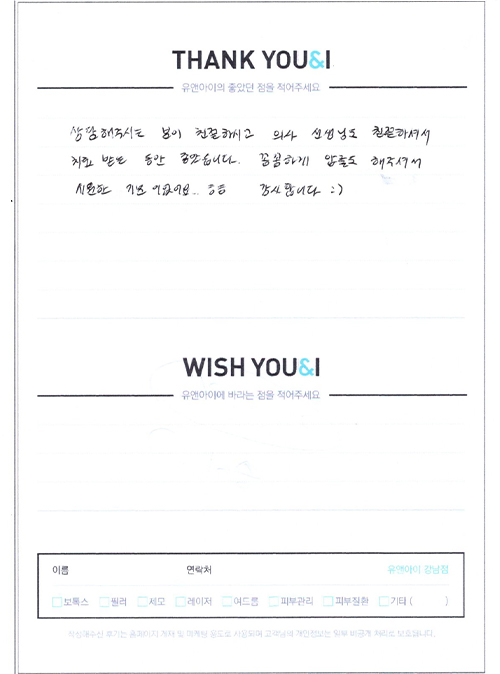 THANK YOU&I
유앤아이의 좋았던 점을 적어주세요
상담해주시는 분이 친절하시고 의사 선생님도 친절하셔서
치료 받는 동안 좋았습니다. 꼼꼼하게 압출도 해주셔서
시원한 기분 이었어요... ㅎㅎ 감사합니다 :)
WISH YOU&I
유앤아이에 바라는 점을 적어주세요
이름 연락처 유앤아이 강남점
보톡스 필러 제모 레이저 여드름 피부관리 피부질환 기타 ( )